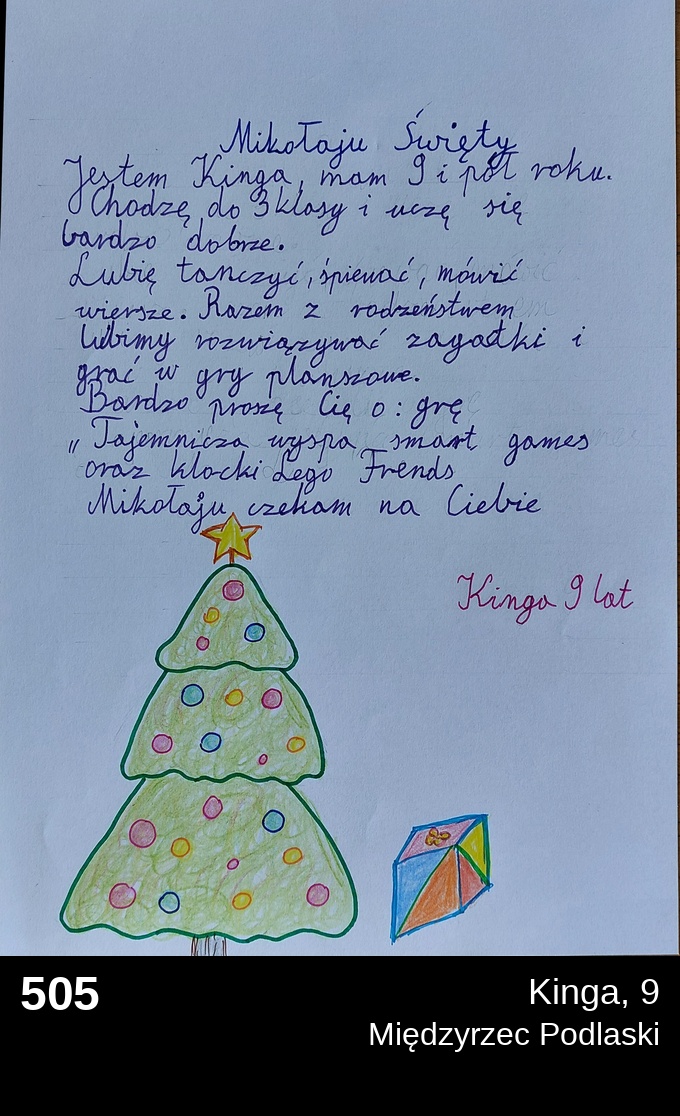 Mikołaju Święty
Jestem Kinga, mam 9 i pół roku.
Chodzę do 3 klasy i uczę się
bardzo dobrze.
Lubię tańczyć, śpiewać, mówić
wiersze. Razem z rodzeństwem
lubimy rozwiązywać zagadki i
grać w gry planszowe.
Bardzo proszę Cię o: grę
„Tajemnicza wyspa smart games
oraz klocki Lego Frends
Mikołaju czekam na Ciebie
Kinga 9 lat
505
Kinga, 9
Międzyrzec Podlaski